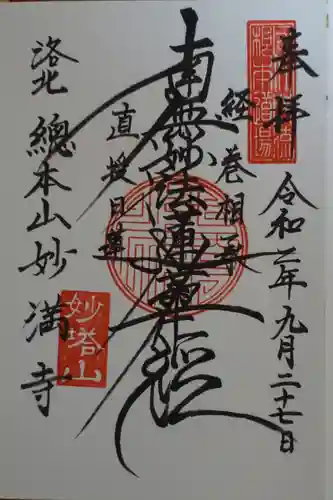 奉拝
日什門流
根本道場
令和二年九月二十七日
経巻相承
南無妙法蓮華経
直授日蓮
洛北 總本山妙満寺
妙塔山